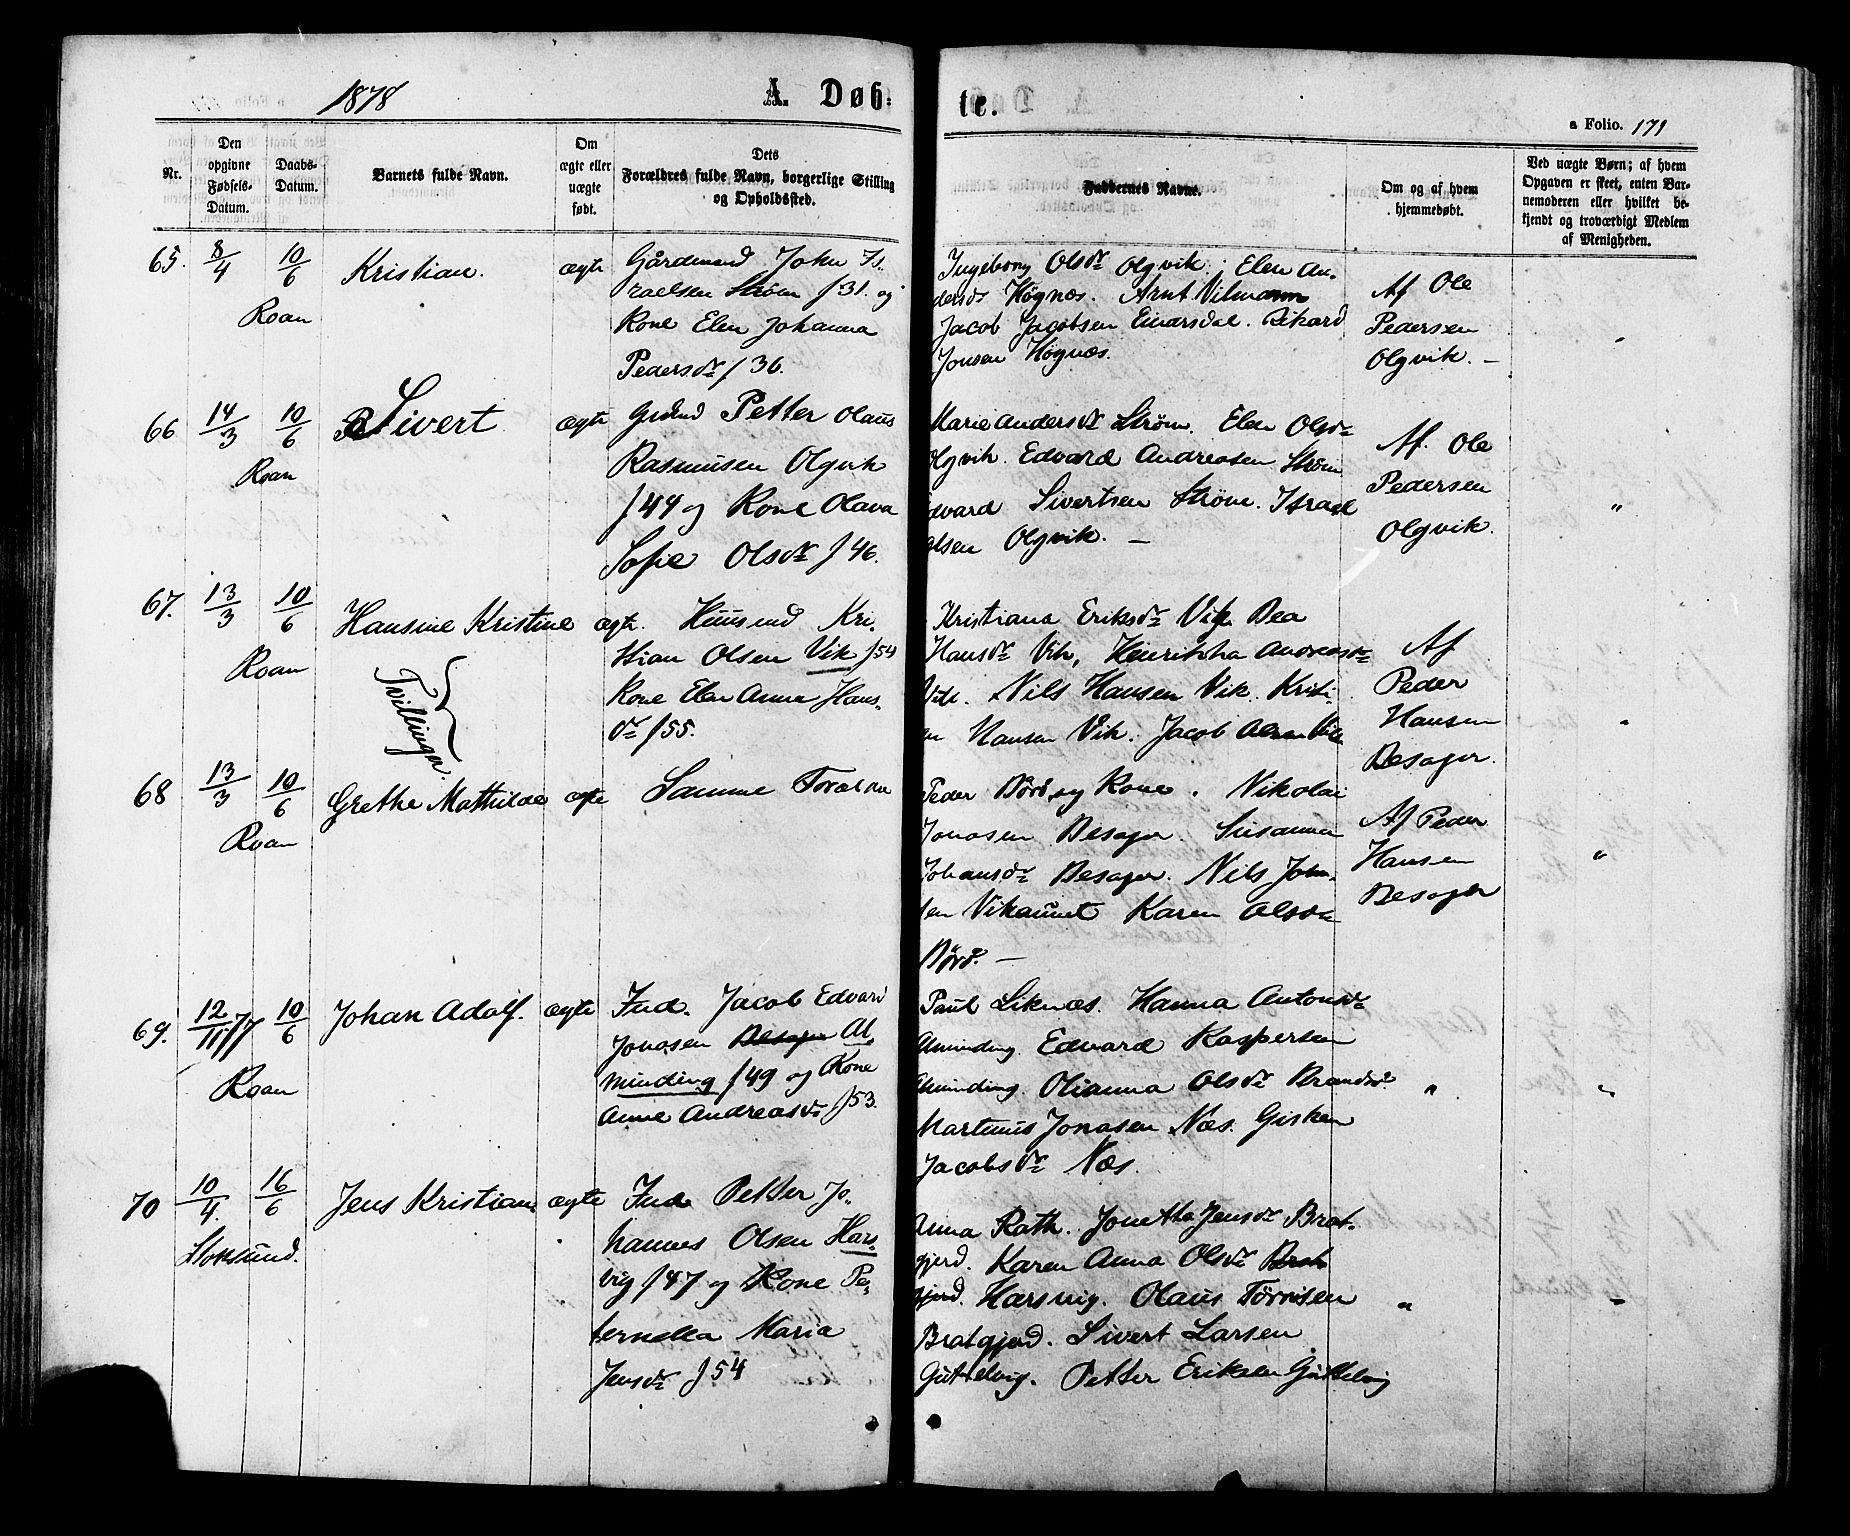 1878
A. Døb-
te.
a Folio. 171
Nr.
Den opgivne Fødsels-Datum.
Daabs-Datum.
Barnets fulde Navn.
Om ægte eller uægte født.
Dets Forældres fulde Navn, borgerlige Stilling og Opholdssted.
Faddernes Navne.
Om og af hvem hjemmedøbt.
Ved uægte Børn; af hvem Opgaven er skeet, enten Barnemoderen eller hvilket bekjendt og troværdigt Medlem af Menigheden.
65. 8/4 10/6 Kristian. ægte
Roan
Gårdmand John Is-
raelsen Strøm f 31. og
Kone Elen Johanna
Pedersdr f 36.
Ingeborg Olsdr Olgvik. Elen An-
dersdr Høgnæs. Arnt Vilmann
Jacob Jacobsen Einarsdal. Rikard
Jonsen Høgnæs.
Af Ole
Pedersen
Olgvik. –
"
66 14/3 10/6 Sivert ægte
Roan
Grdmd Petter Olaus
Rasmusen Olgvik
f 44 og Kone Olava
Sofie Olsdr f 46.
Marie Andersdr Strøm. Elen Olsdr
Olgvik. Edvard Andreasen Strøm
Edvard Sivertsen Strøm. Israel
Olsen Olgvik. –
Af. Ole
Pedersen
Olgvik.
"
67. 13/3 10/6 Hansine Kristine ægte.
Roan
Tvillinger.
Huusmd Kri-
stian Olsen Vik f 54
Kone Elen Anna Hans-
dr f 55.
Kristiana Eriksdr Vik Bea
Hansdr Vik, Henrikka Andreasdr
Vik. Nils Hansen Vik. Kristi-
an Hansen Vik. Jacob Olsen Vik
Af
Peder
Hansen
Besager.
"
68 13/3 10/6 Grethe Mathilde ægte
Roan
Samme Forældre
Peder Børd og Kone. Nikolai
Jonasen Besager. Susanna
Johansdr Besager. Nils John-
sen Vikaunet Karen Olsdr
Børd. –
Af Peder
Hansen
Besager
"
69. 12/11 77 10/6 Johan Adolf. ægte
Roan
Ind. Jacob Edvard
Jonasen Besager Al-
minding f 49 og Kone
Anne Andreasdr f 53.
Paul Liknæs. Hanna Antonsdr
Alminding. Edvard Kaspersen
Alminding. Olianna Olsdr Brandsø
Martinus Jonasen Næs. Gisken
Jacobsdr Næs.
"
"
70 10/4. 16/6 Jens Kristian ægte
Stoksund.
Ind Petter Jo-
hannes Olsen Hars-
vig f 47 og Kone Pe-
ternella Maria
Jensdr f 54
Anna Rath. Jonetta Jensdr Brat-
gjerd. Karen Anna Olsdr Brat-
gjerd. Harsvig. Olaus Tørrisen
Bratgjerd. Sivert Larsen
Guttelvig. Petter Eriksen Guttelvig
"
"